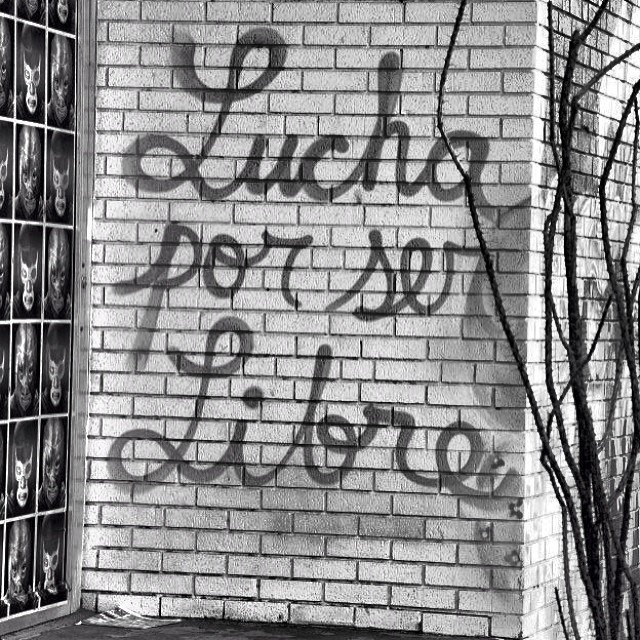 Lucha
por ser
Libre